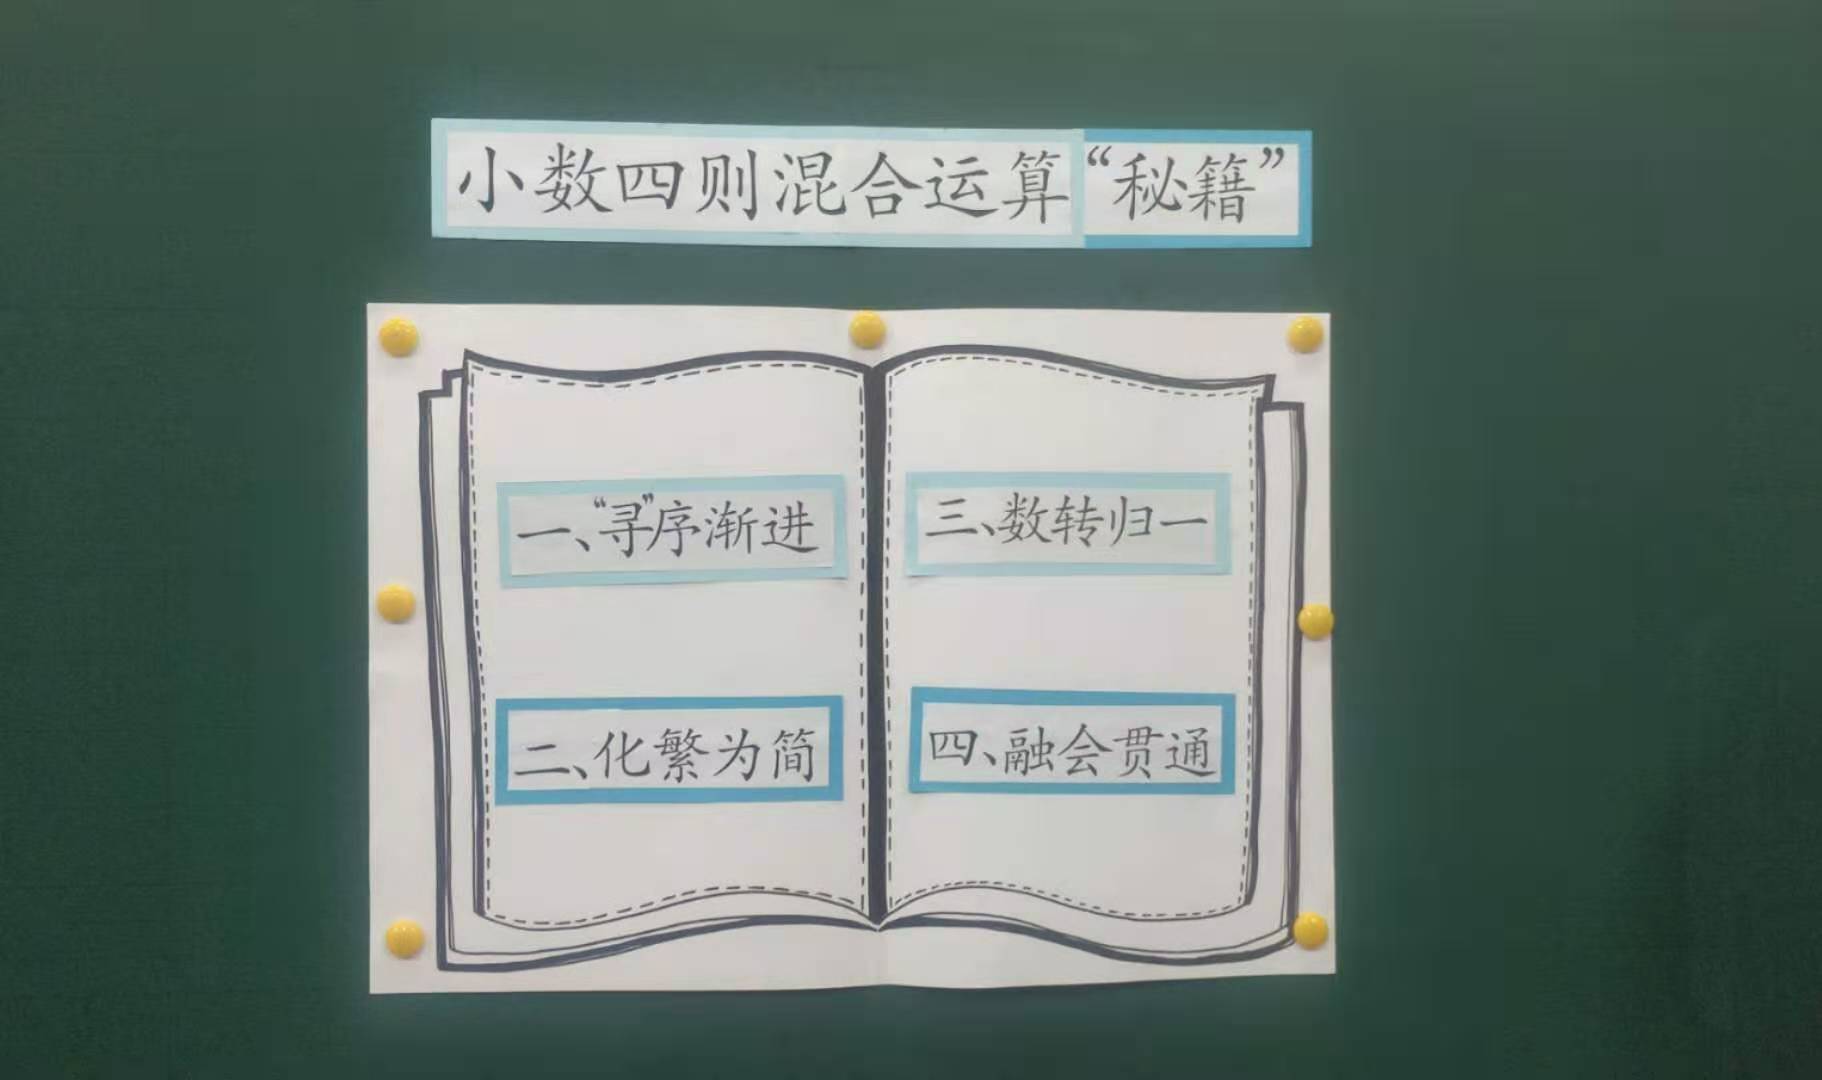 小数四则混合运算“秘籍”
一、“寻”序渐进
二、化繁为简
三、数转归一
四、融会贯通